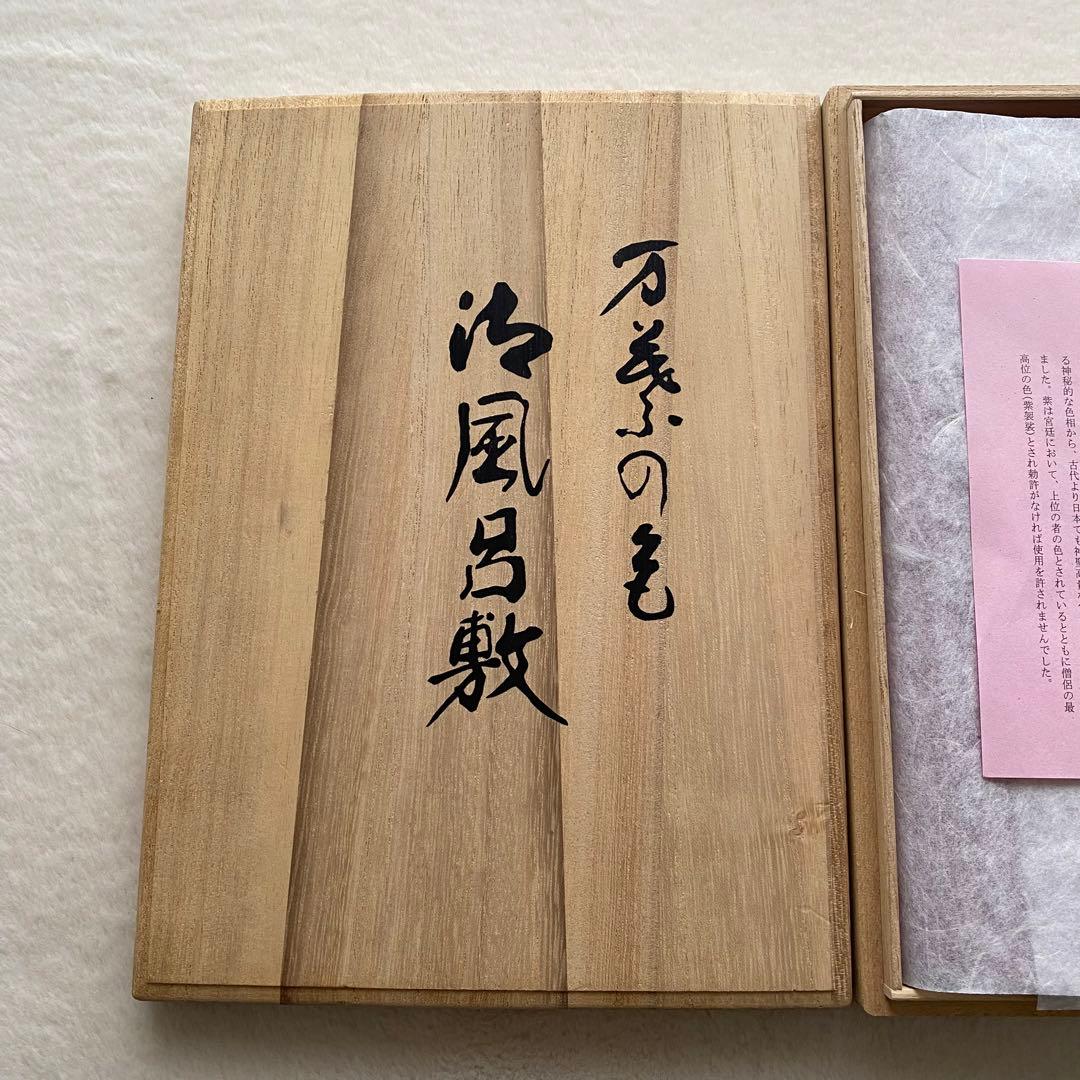 万葉の色
御風呂敷
る神秘的な色相から、古代より日本でも神聖高貴な
ました。紫は宮廷において、上位の者の色とされているとともに僧侶の最
高位の色(紫袈裟)とされ勅許がなければ使用を許されませんでした。